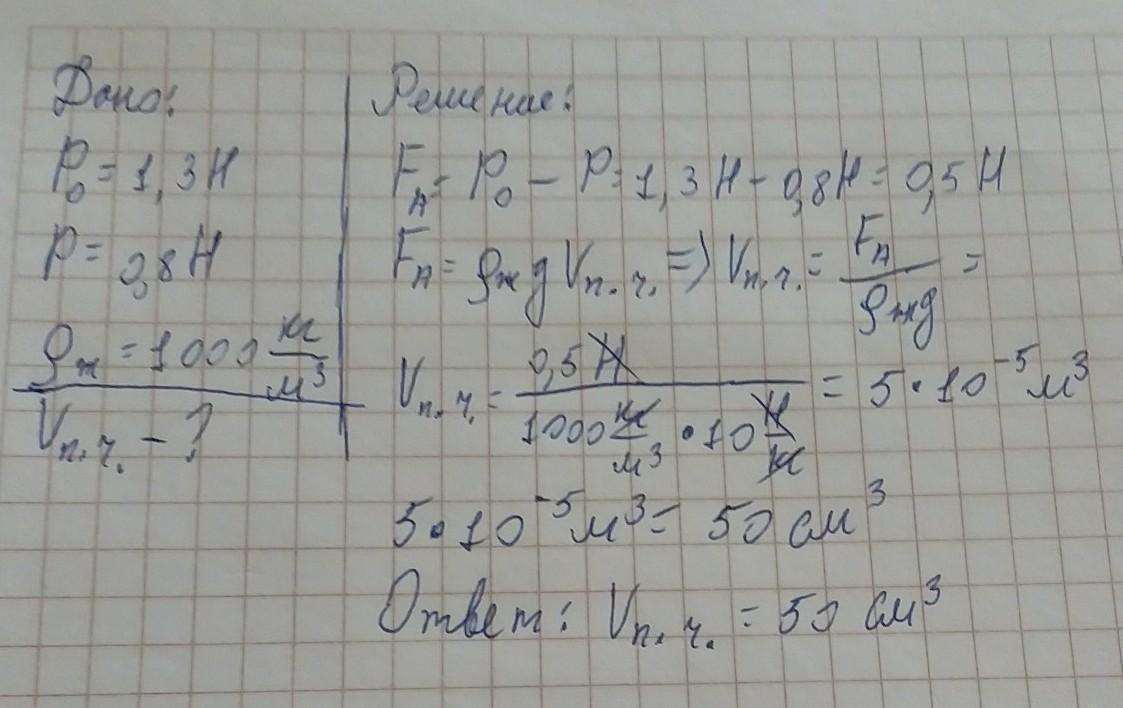 Дано:
P₀ = 1,3 Н
P = 0,8 Н
ρж = 1000 кг/м³
Vп.ч. - ?
Решение:
FA = P₀ - P = 1,3 Н - 0,8 Н = 0,5 Н
FA = ρж g Vп.ч. => Vп.ч. = FA/ρжg =
Vп.ч. = 0,5 Н / 1000 кг/м³ • 10 Н/кг = 5 • 10⁻⁵ м³
5 • 10⁻⁵ м³ = 50 см³
Ответ: Vп.ч. = 50 см³